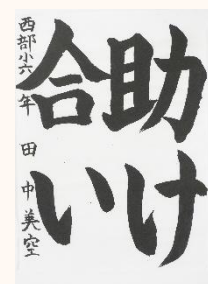 助け
合い
西部小六年 田中美空